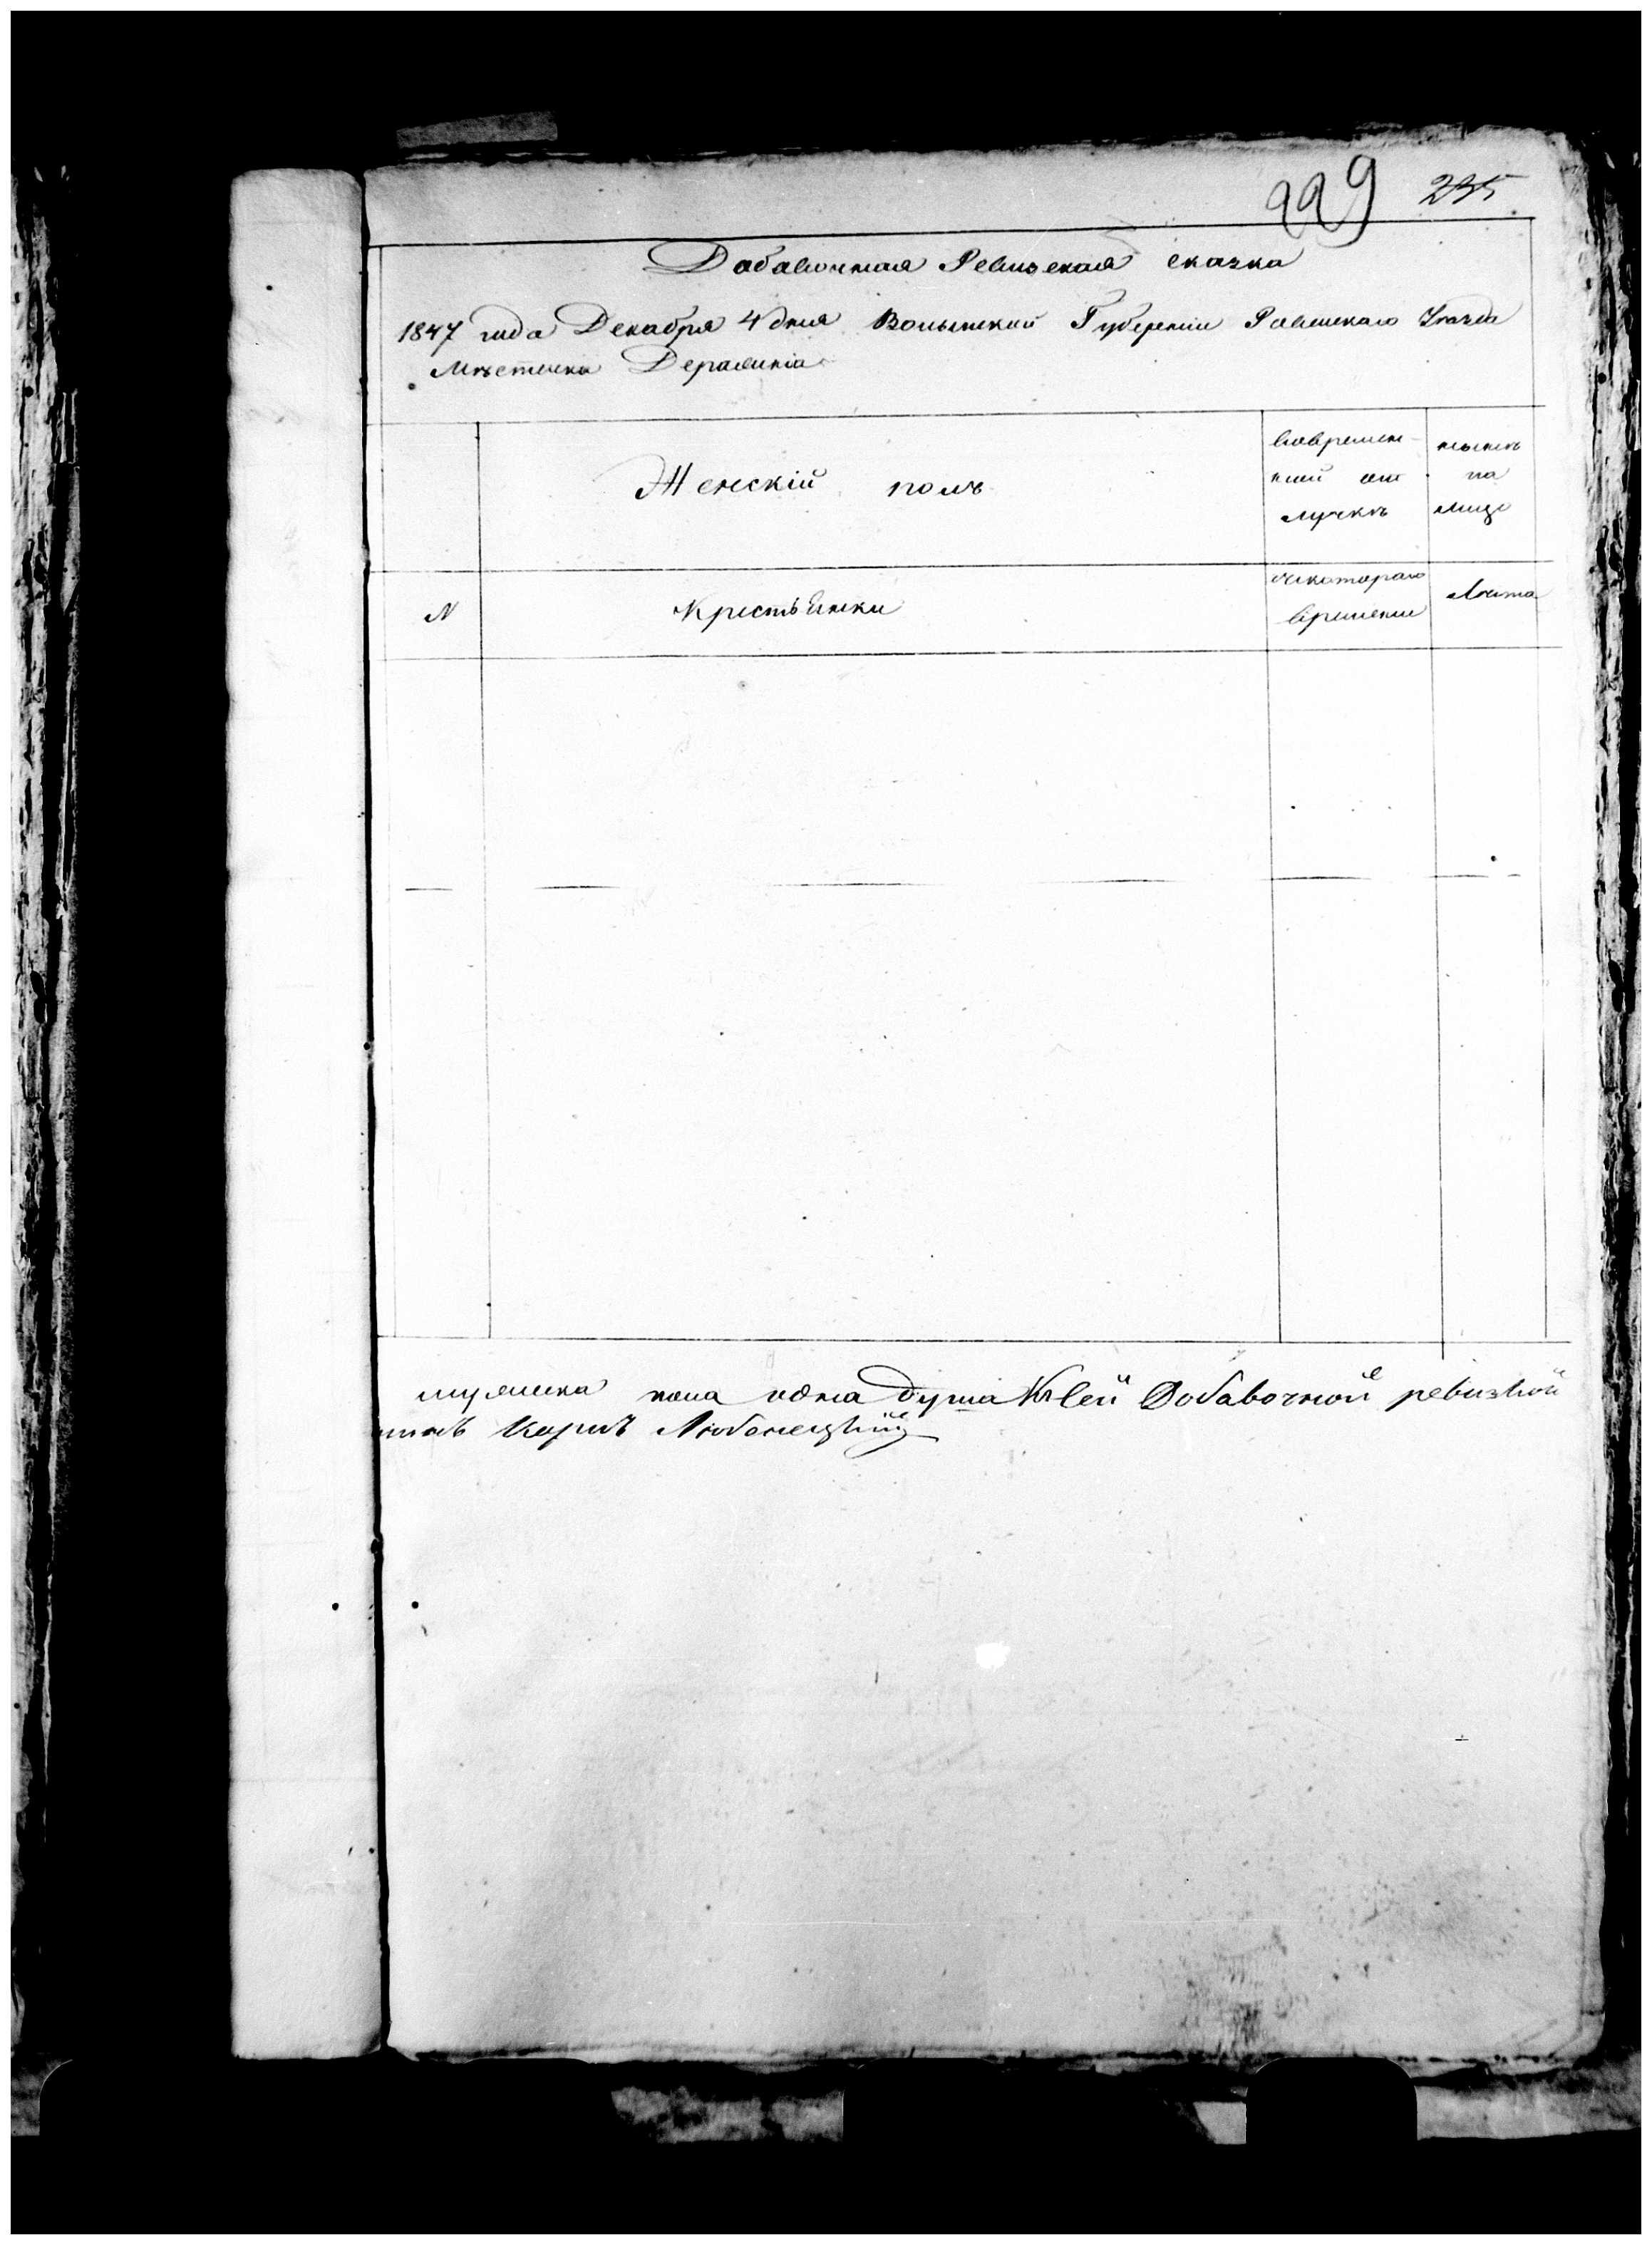 229 235
Добавочная Ревизская сказка
1847 года Декабря 4 дня Волынской Губернии Ровенскаго Уезда
Мѣстечка Деражнія
Женскій полъ
вовремен-
ной от
лучкѣ
нынѣ
на
лицо
N
Крестьянки
съкотораго
времени
Лѣта
мужеска пола одна душа Къ сей Добавочной ревизкой
Любонецкий